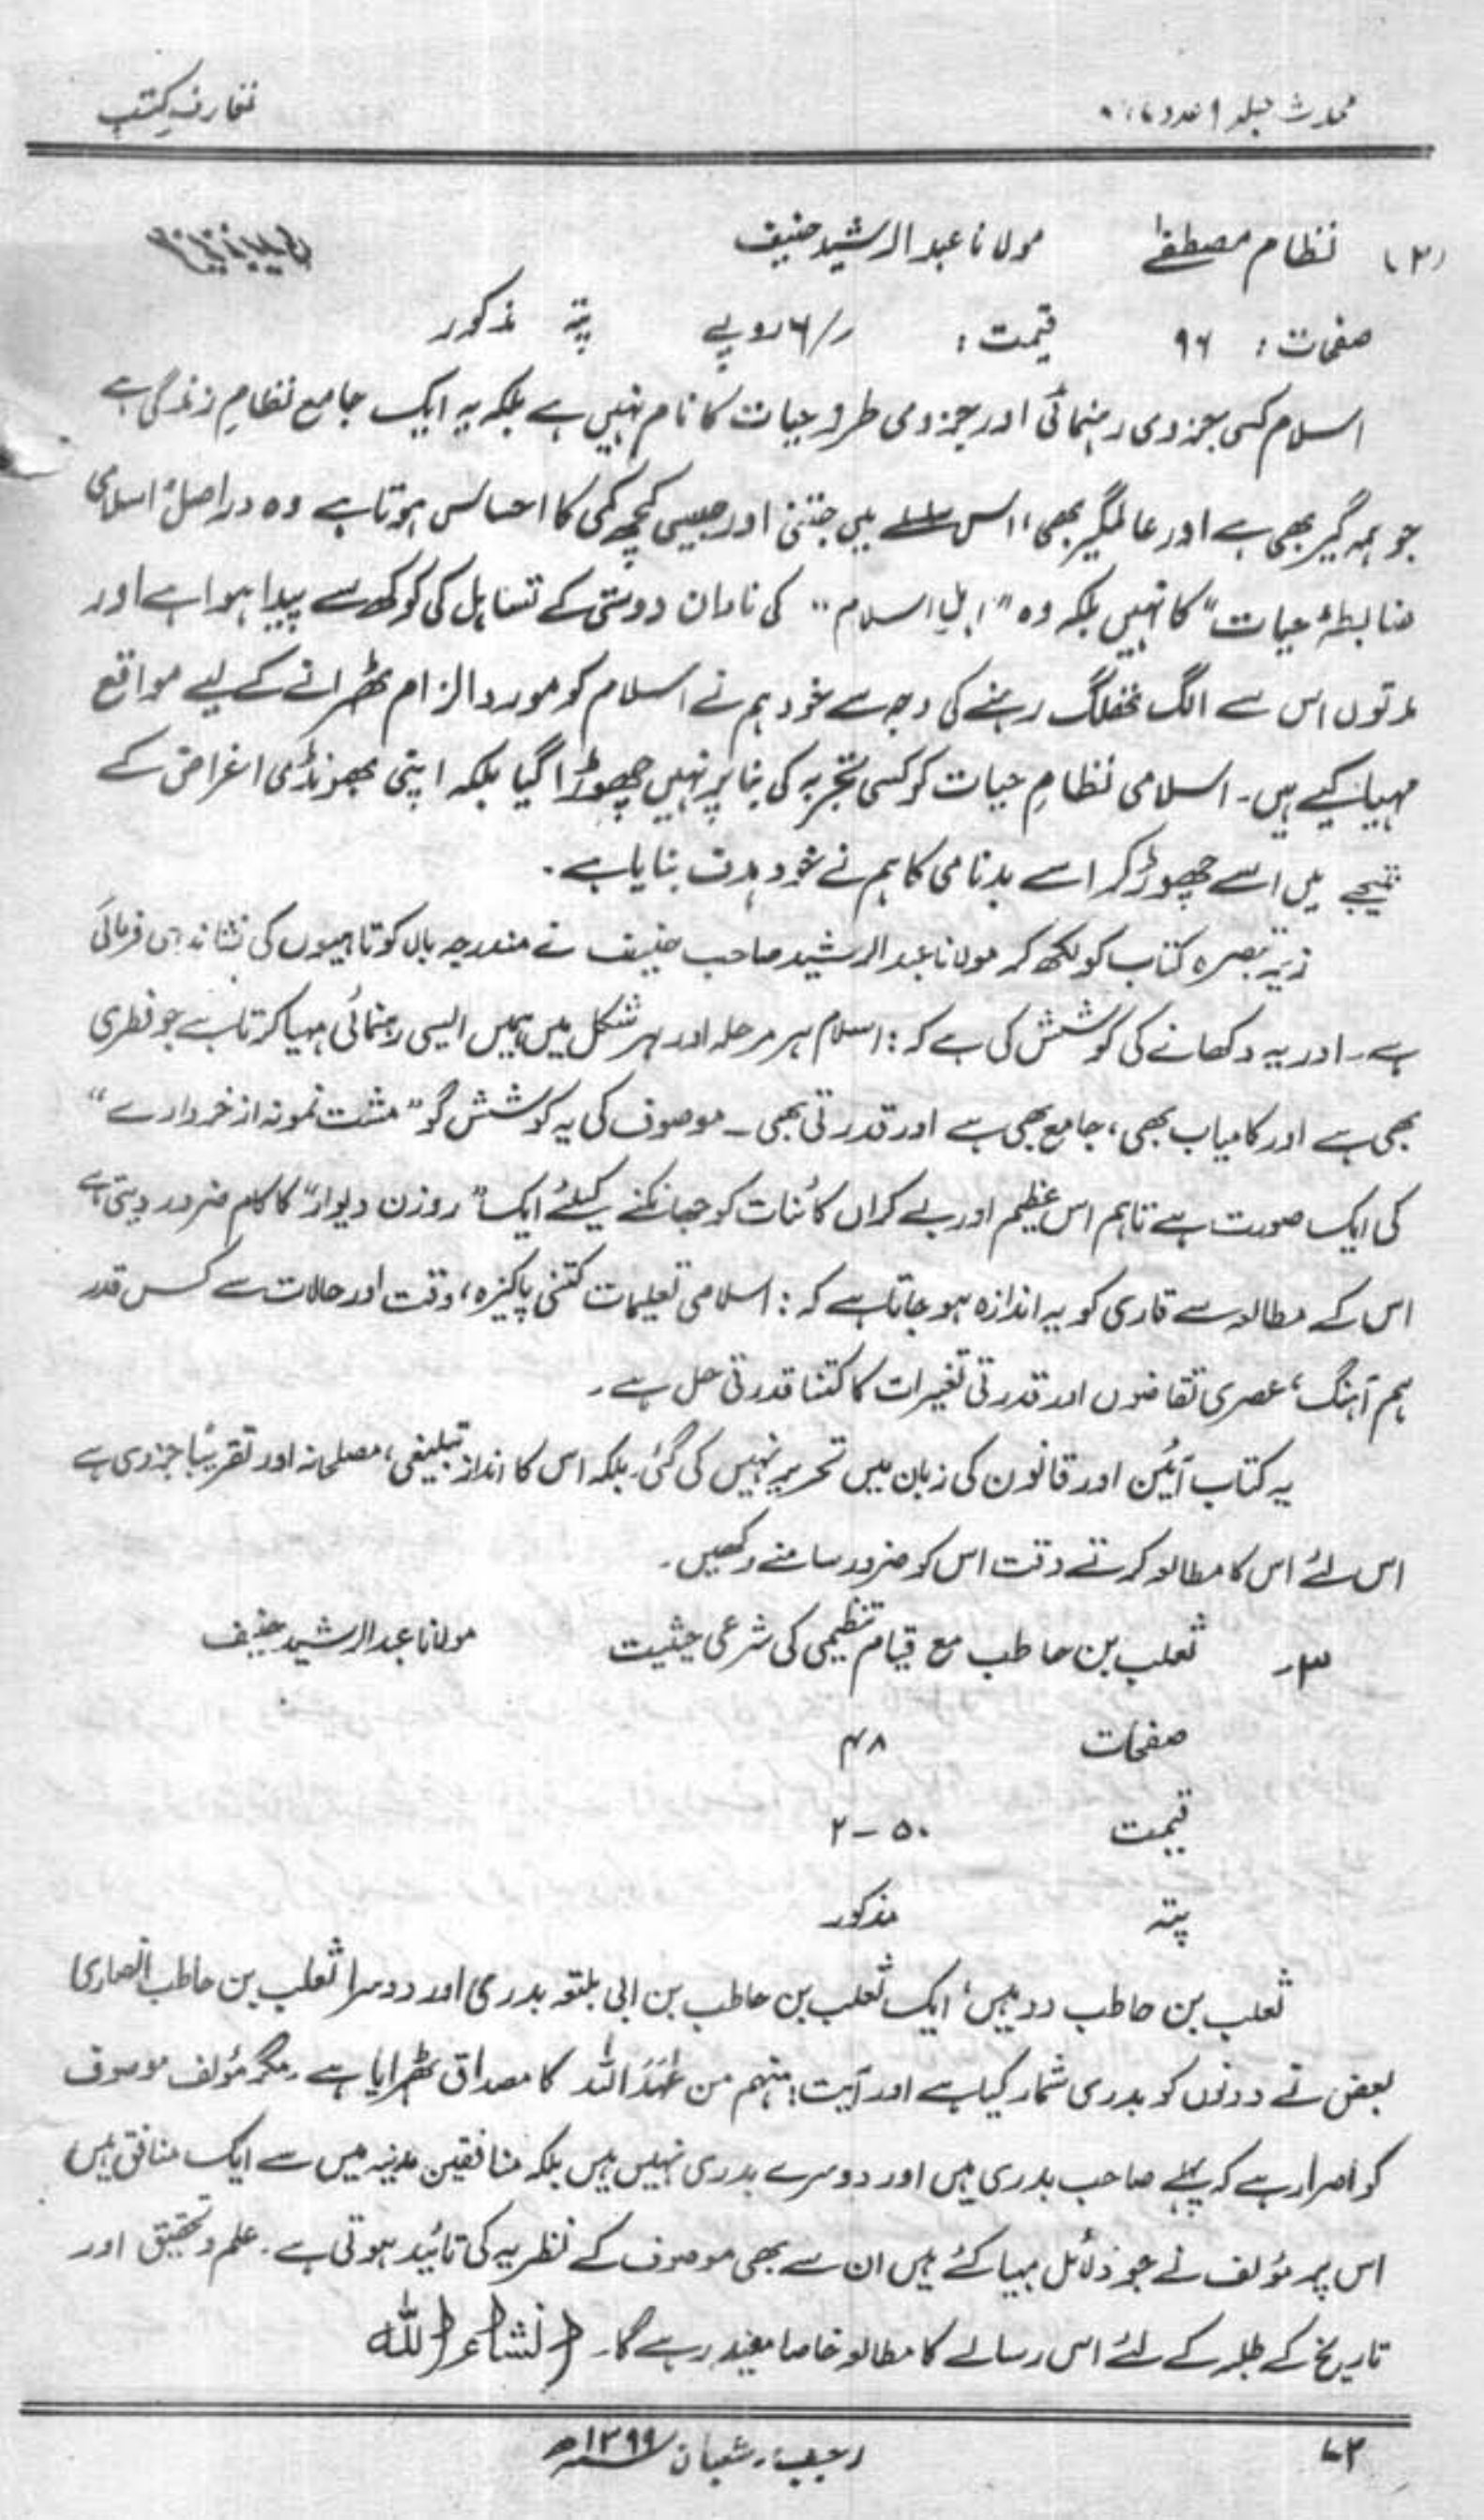 محدث جلد ۹ عدد ۷، ۸ تعارف کتب
(۲) نظام مصطفےٰ مولانا عبدالرشید حنیف
صفحات : ۹۶ قیمت : ‎/۶ روپے پتہ مذکور
اسلام کسی جزوی رہنمائی اور جزوی طرز حیات کا نام نہیں ہے بلکہ یہ ایک جامع نظامِ زندگی ہے
جو ہمہ گیر بھی ہے اور عالمگیر بھی، اس سلسلے میں جتنی اور جیسی کچھ کمی کا احساس ہوتا ہے وہ دراصل "اسلامی
ضابطۂ حیات" کا نہیں بلکہ وہ "اہلِ اسلام" کی نادان دوستی کے تساہل کی کوکھ سے پیدا ہوا ہے اور
مدتوں اس سے الگ تھلگ رہنے کی وجہ سے خود ہم نے اسلام کو مورد الزام ٹھرانے کے لیے مواقع
مہیا کیے ہیں۔ اسلامی نظامِ حیات کو کسی تجربہ کی بنا پر نہیں چھوڑا گیا بلکہ اپنی بھونڈی اغراض کے
نتیجے میں اسے چھوڑ کر اسے بدنامی کا ہم نے خود ہدف بنایا ہے۔
زیر تبصرہ کتاب کو لکھ کر مولانا عبدالرشید صاحب حنیف نے مندرجہ بالا کوتاہیوں کی نشاندہی فرمائی
ہے۔ اور یہ دکھانے کی کوشش کی ہے کہ : اسلام ہر مرحلہ اور ہر شکل میں ہمیں ایسی رہنمائی مہیا کرتا ہے جو فطری
بھی ہے اور کامیاب بھی، جامع بھی ہے اور قدرتی بھی ۔ موصوف کی یہ کوشش گو "مشت نمونہ از خروارے"
کی ایک صورت ہے تاہم اس عظیم اور بے کراں کائنات کو جھانکنے کیلئے ایک "روزن دیوار" کا کام ضرور دیتی ہے
اس کے مطالعہ سے قاری کو یہ اندازہ ہو جاتا ہے کہ : اسلامی تعلیمات کتنی پاکیزہ، وقت اور حالات سے کس قدر
ہم آہنگ، عصری تقاضوں اور قدرتی تغیرات کا کتنا قدرتی حل ہے ۔
یہ کتاب آئین اور قانون کی زبان میں تحریر نہیں کی گئی، بلکہ اس کا انداز تبلیغی، مصلحانہ اور تقریباً جزوی ہے
اس لئے اس کا مطالعہ کرتے وقت اس کو ضرور سامنے رکھیں۔
۳۔ ثعلب بن حاطب مع قیام تنظیمی کی شرعی حیثیت مولانا عبدالرشید حنیف
صفحات ۴۸
قیمت ۵۰ – ۲
پتہ مذکور
ثعلب بن حاطب دو ہیں، ایک ثعلب بن حاطب بن ابی بلتعہ بدری اور دوسرا ثعلب بن حاطب انصاری
بعض نے دونوں کو بدری شمار کیا ہے اور آیت : منہم من عٰہَدَ اللہ کا مصداق ٹھرایا ہے۔ مگر مؤلف موصوف
کو اصرار ہے کہ پہلے صاحب بدری ہیں اور دوسرے بدری نہیں ہیں بلکہ منافقین مدینہ میں سے ایک منافق ہیں
اس پر مؤلف نے جو دلائل مہیا کئے ہیں ان سے بھی موصوف کے نظریہ کی تائید ہوتی ہے۔ علم و تحقیق اور
تاریخ کے طلبہ کے لئے اس رسالے کا مطالعہ خاصا مفید رہے گا۔ انشاء اللہ
۷۲ رجب، شعبان ۱۳۹۹ھ